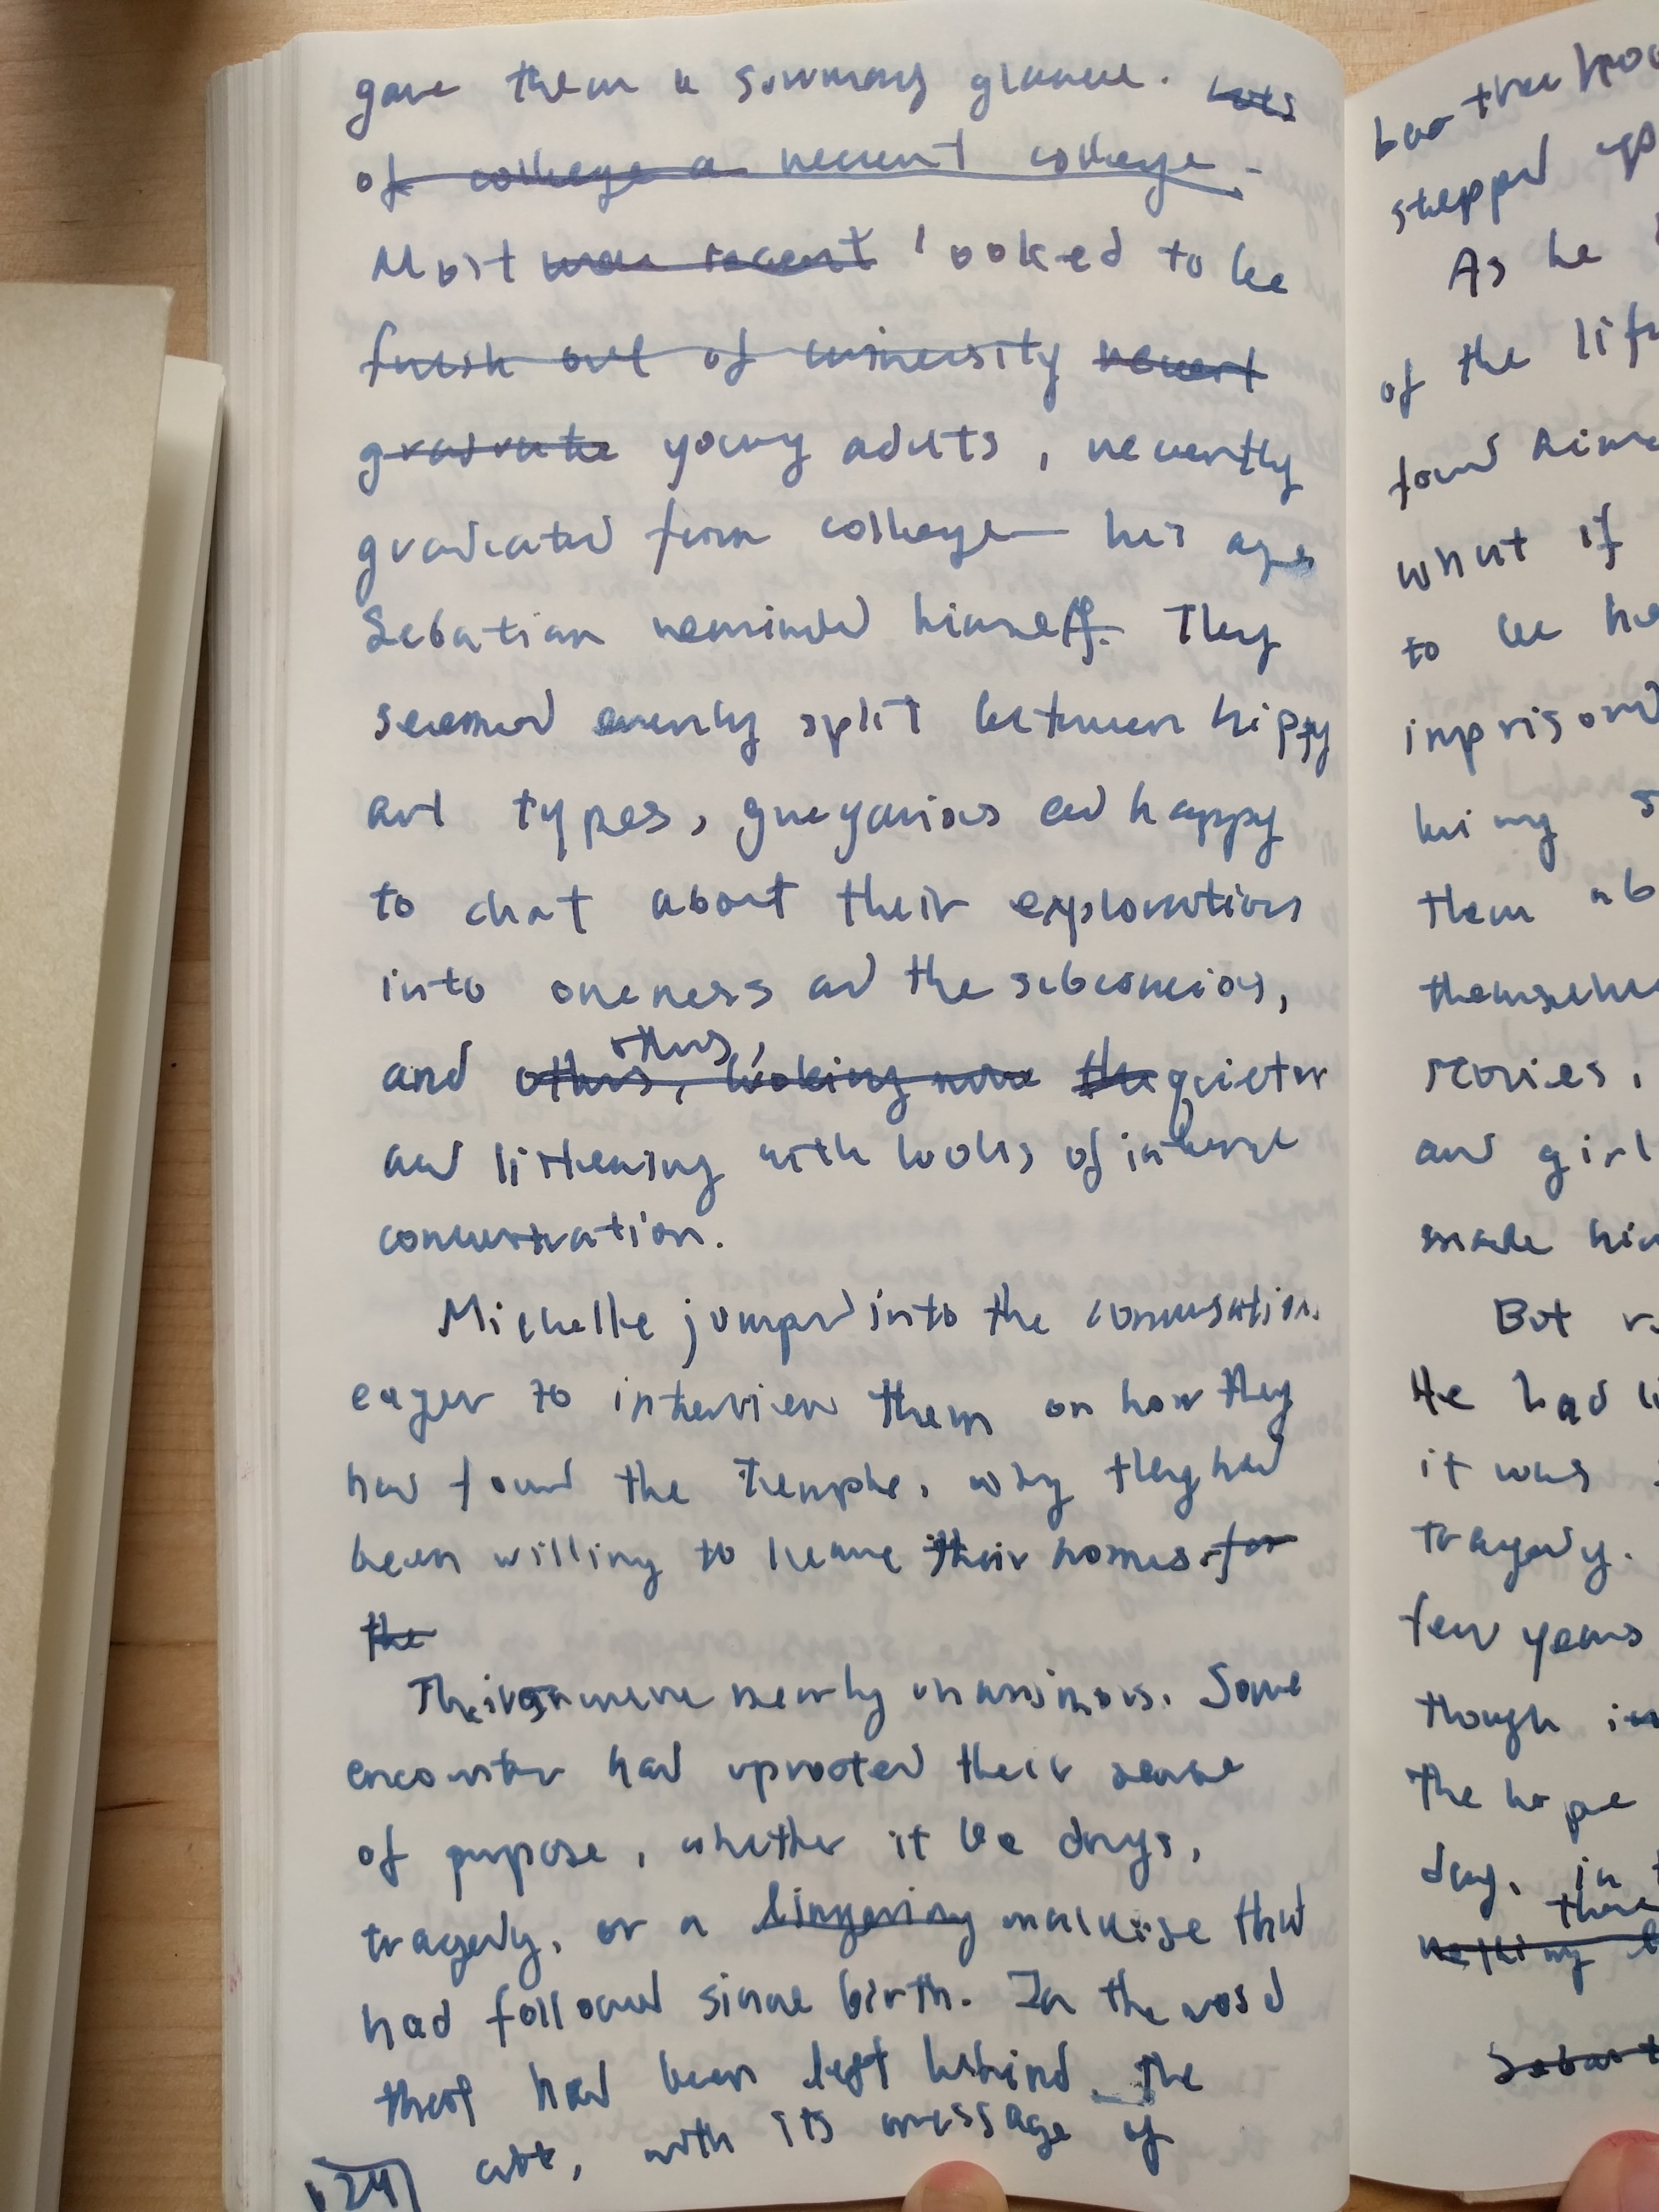 gave them a summary glance. Lots
of college a recent college
Most were recent looked to be
fresh out of university recent
graduate young adults, recently
graduated from college— his age
Sebatian reminded himself. They
seemed evenly split between hippy
art types, gregarious and happy
to chat about their explorations
into oneness and the subconcious,
others,
and others, looking more the quieter
and listening with looks of intense
concentration.
Michelle jumped into the conversation,
eager to interview them on how they
had found the Temple, why they had
been willing to leave their homes. for
the
Their were nearly unanimous. Some
encounter had uprooted their sense
of purpose, whether it be drugs,
tragedy, or a lingering malaise that
had followed since birth. In the void
that had been left behind the
with its message of
124
stepped up
As he
of the
found
what if
to be
imprisoned
being
them
themselves
and girl
made
But
He had
it was
tragedy.
few years
though
the hope
day, in
there
nothing